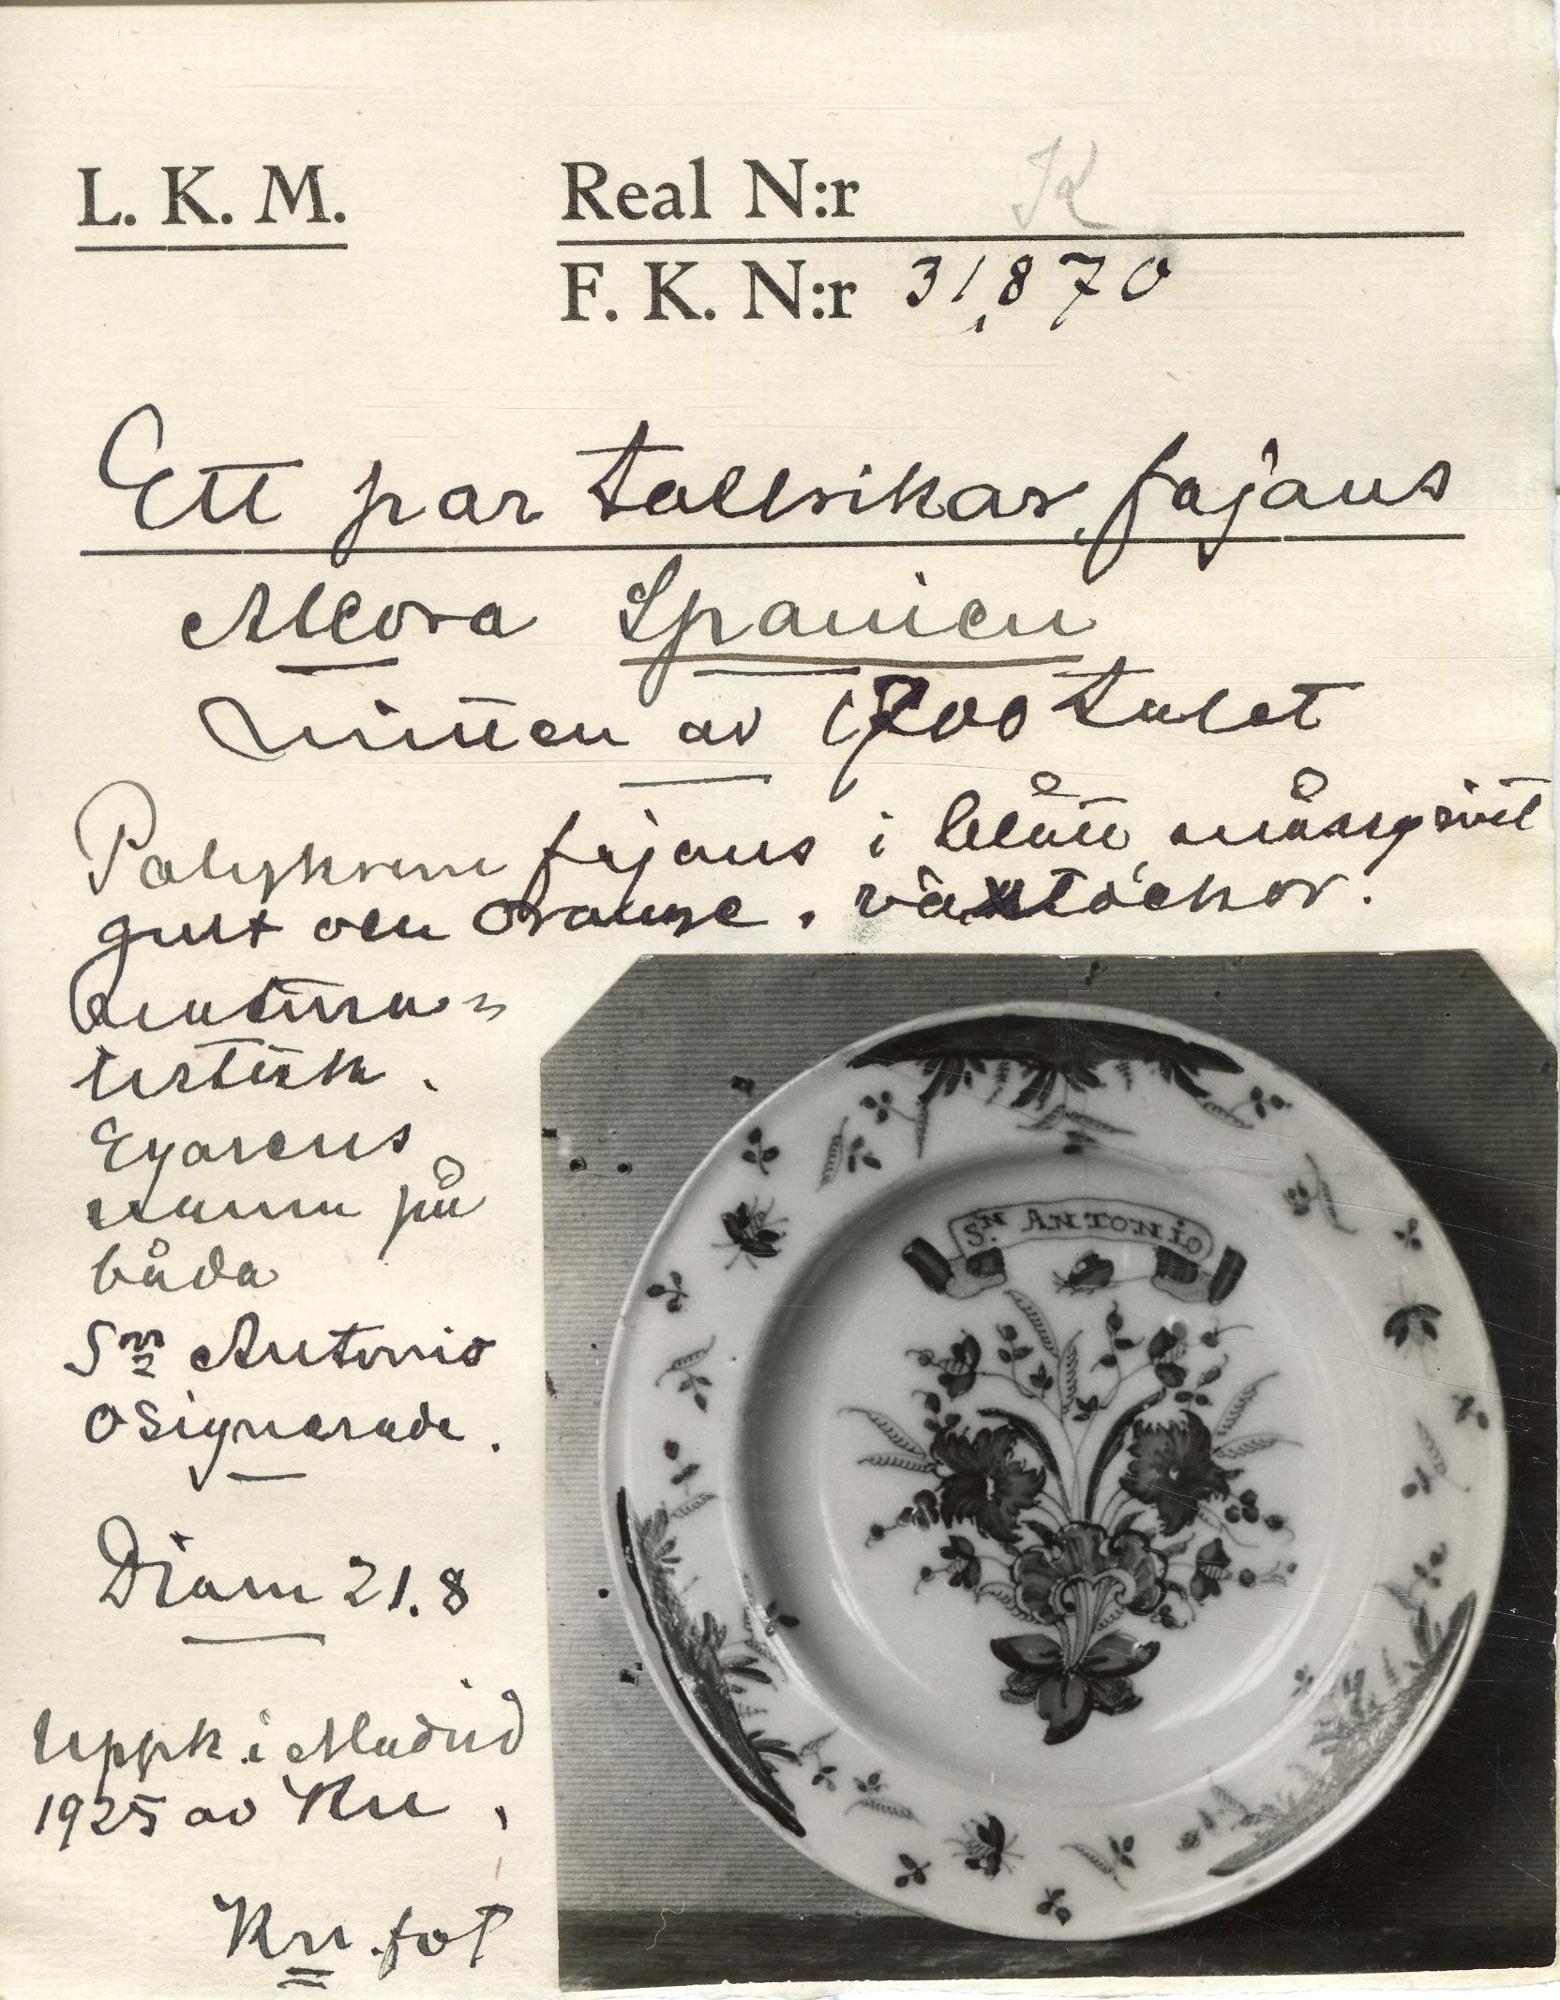 L. K. M.
Real N:r K
F. K. N:r 31,870
Ett par tallrikar, fajans
Alcora Spanien
mitten av 1700 talet
Polykrom fajans i blått, måsgrönt
gult och orange. växtdekor.
Ägarens
namn på
båda
Sn Antonio
osignerade.
Diam 21.8
Uppk i Madrid
1925 av Kn.
Kn. fot
Sn. ANTONIO